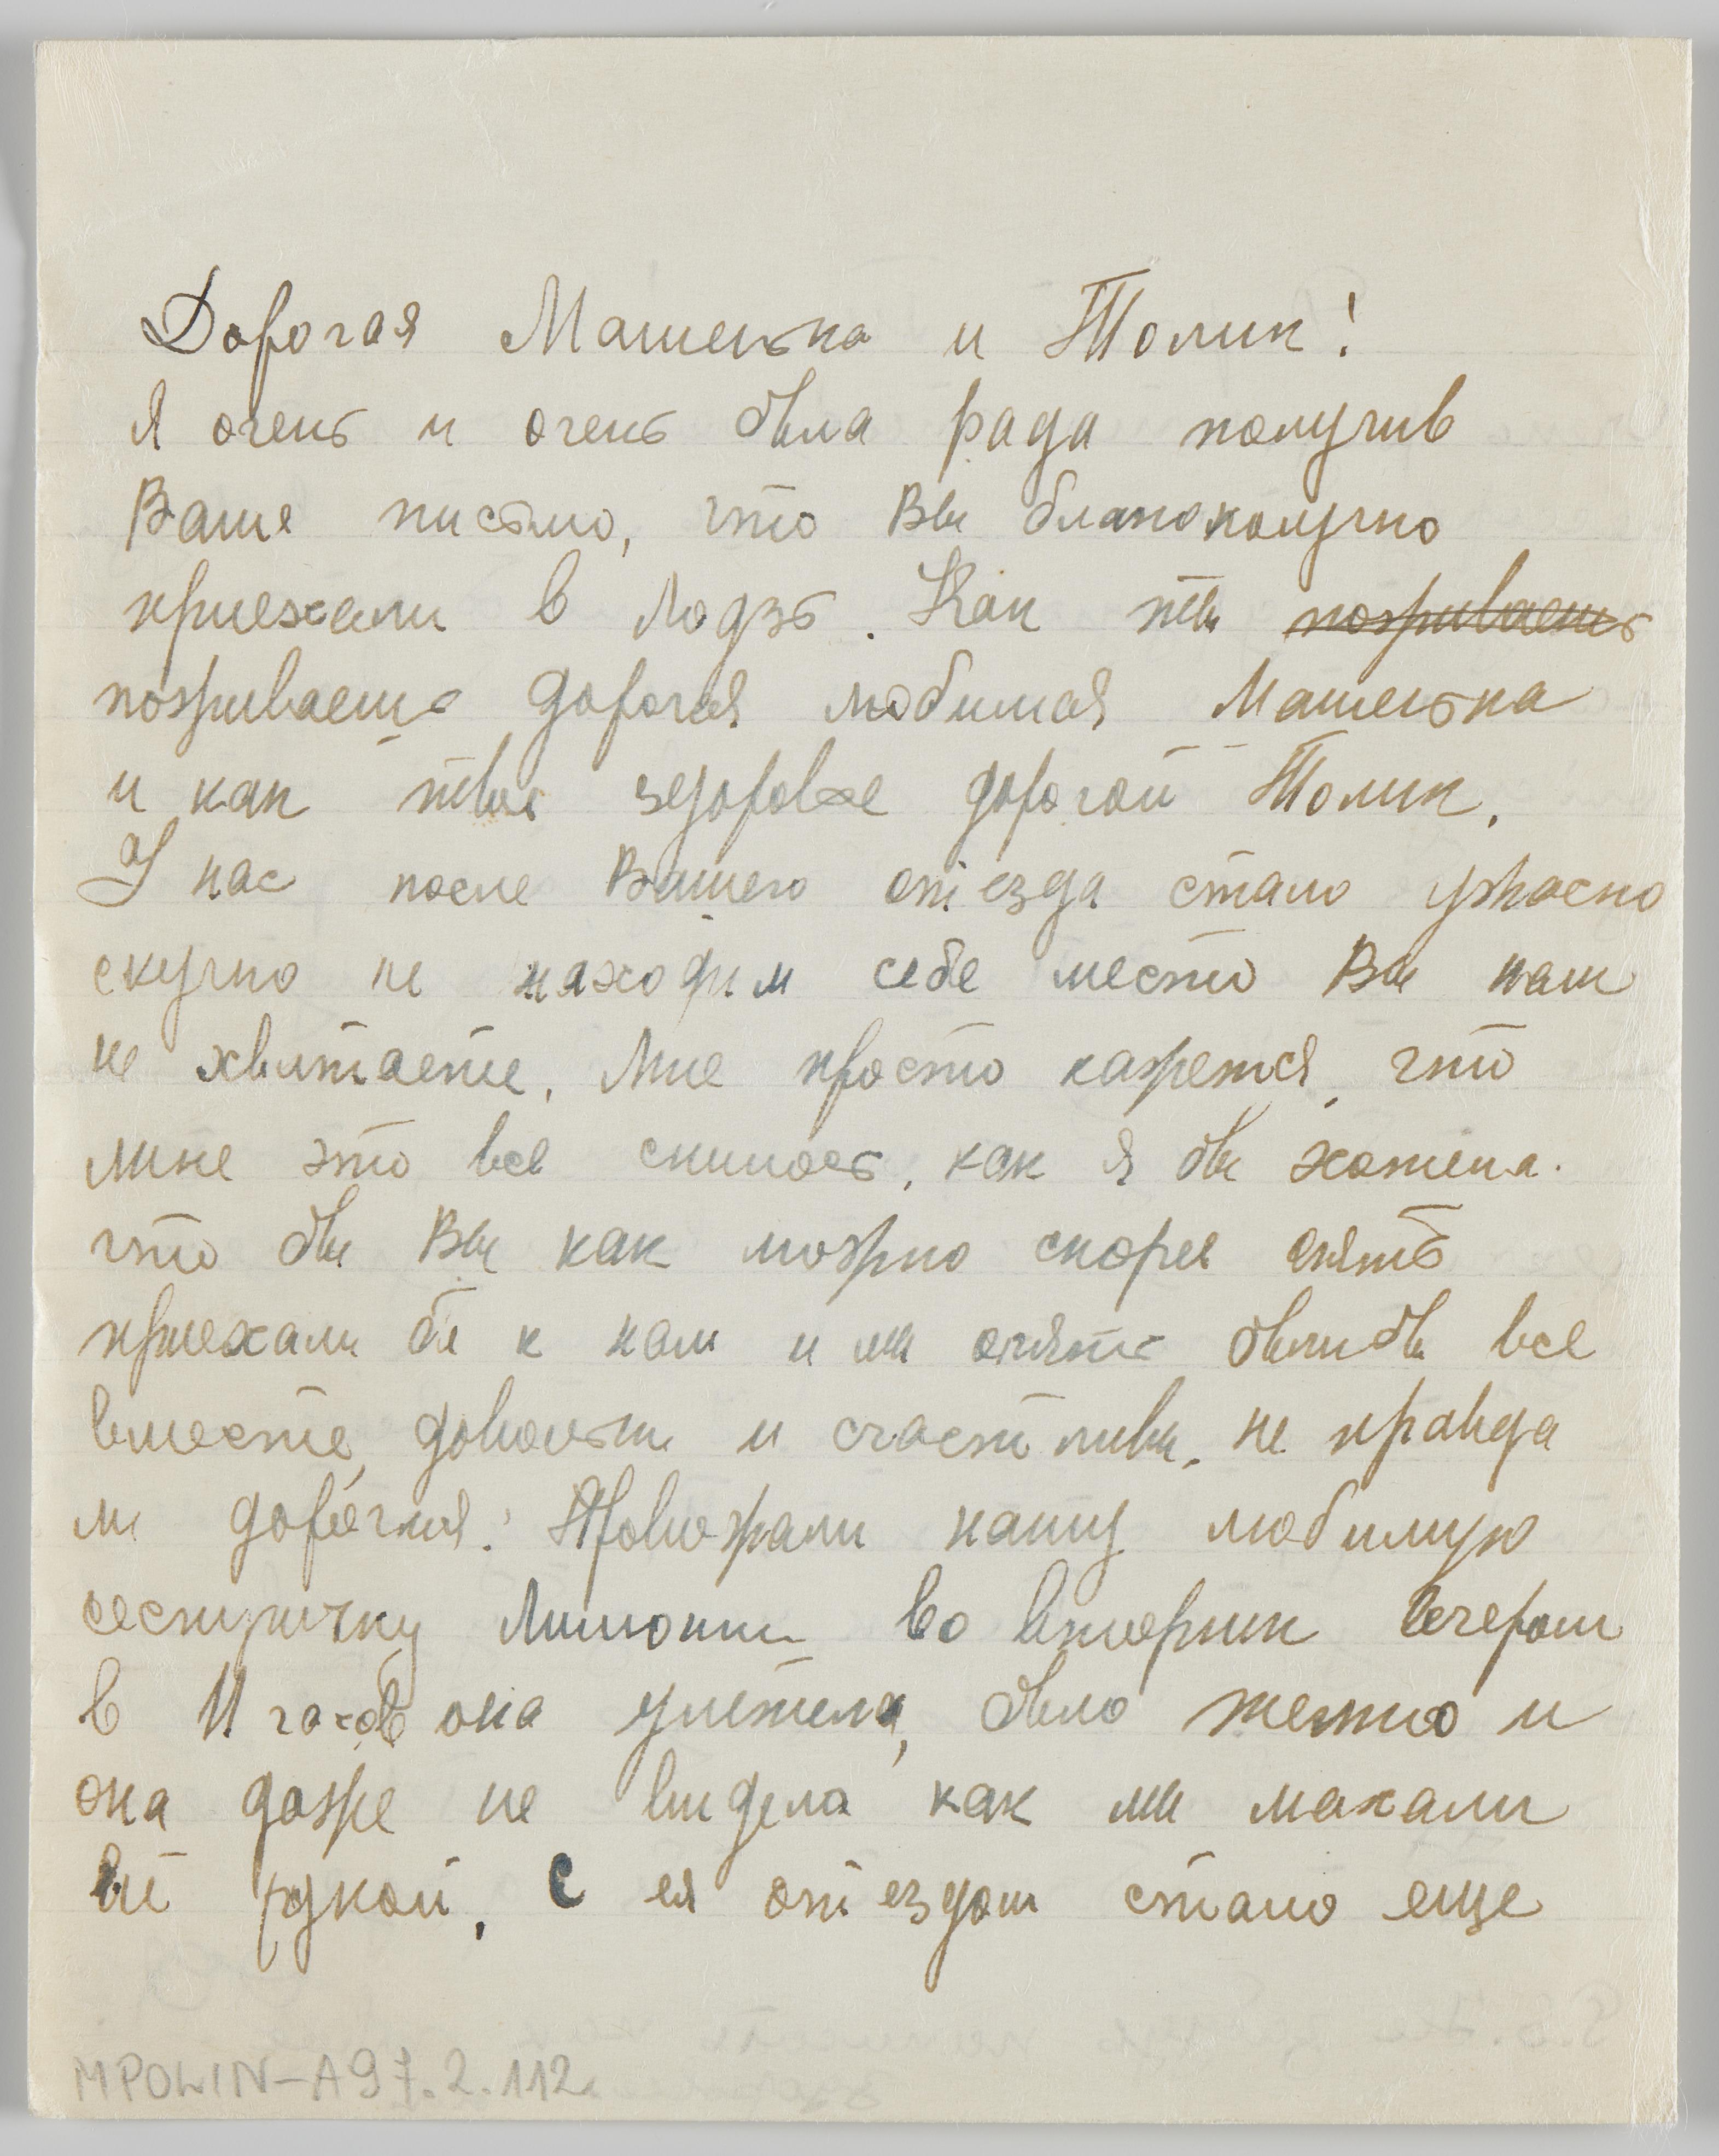 Дорогая Машенька и Толик!
Я очень и очень была рада получив
Ваше письмо, что Вы благополучно
приехали в Лодзь. Как ты поживаешь
поживаешь дорогая любимая Машенька
и как твое здоровье дорогой Толик.
У нас после Вашего отъезда стало ужасно
скучно не находим себе место Вы нам
не хватаете. Мне просто кажется, что
мне это все снилось, как я бы хотела.
что бы Вы как можно скорее опять
приехали бы к нам и мы опять были бы все
вместе, довольны и счастливы, не правда
ли дорогая? Провожали нашу любимую
сестричку во вторник вечером
в 11 часов она улетела, было темно и
она даже не видела как мы махали
ей рукой. С ея отъездом стало еще
MPOLIN-A97.2.112